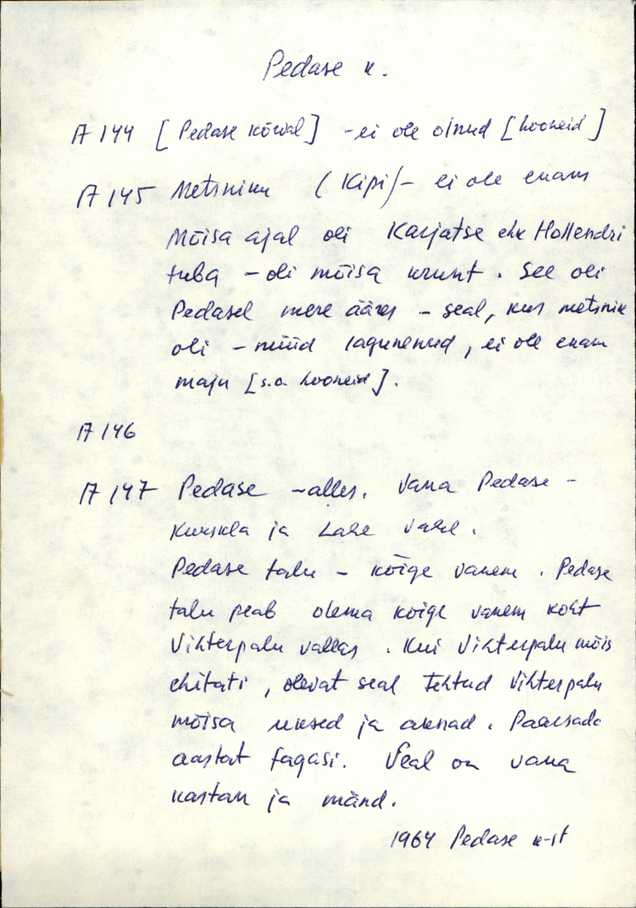 Pedase k.
A 144 [Pedase kõrval] - ei ole olnud [hooneid]
A 145 Metsniku (Kipi) - ei ole enam
Mõisa ajal oli Karjatse ehk Hollendri
tuba - oli mõisa krunt. See oli
Pedasel mere ääres - seal, kus metsnik
oli - nüüd lagunenud, ei ole enam
maju [s.o. hooneid].
A 146
A 147 Pedase - alles. Vana Pedase -
ja Lahe vahel.
Pedase talu - kõige vanem. Pedase
talu peab olema kõige vanem koht
Vihterpalu vallas. Kui Vihterpalu mõis
ehitati, olevat seal tehtud Vihterpalu
mõisa uksed ja aknad. Paarsada
aastat tagasi. Seal on vana
kastan ja mänd.
1964 Pedase k-st